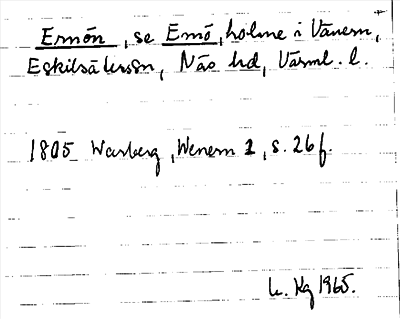 Ernön, se Emö, holme i Vänern,
Eskilsäterssn, Näs hd, Värml. l.
1805 Warberg, Wenern 2, s. 26 f.
Kg 1965.